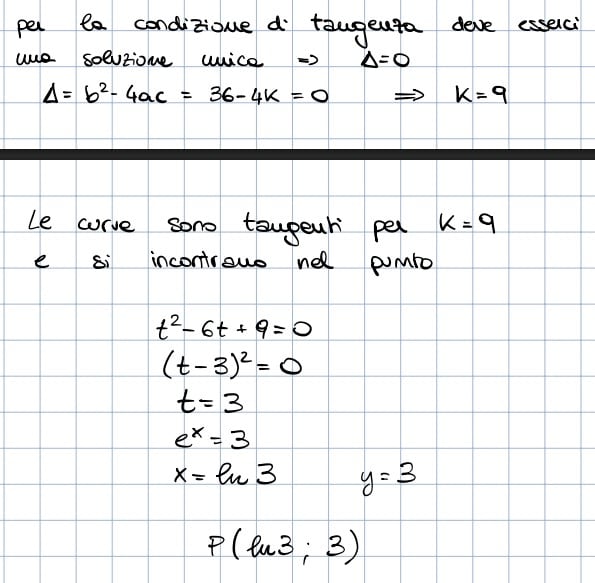 per la condizione di tangenza deve esserci
una soluzione unica => Δ=0
Δ= b²-4ac = 36-4K = 0 => K=9
Le curve sono tangenti per K=9
e si incontrano nel punto
t²-6t+9=0
(t-3)²=0
t=3
eˣ=3
x= ln 3 y=3
P(ln3 ; 3)